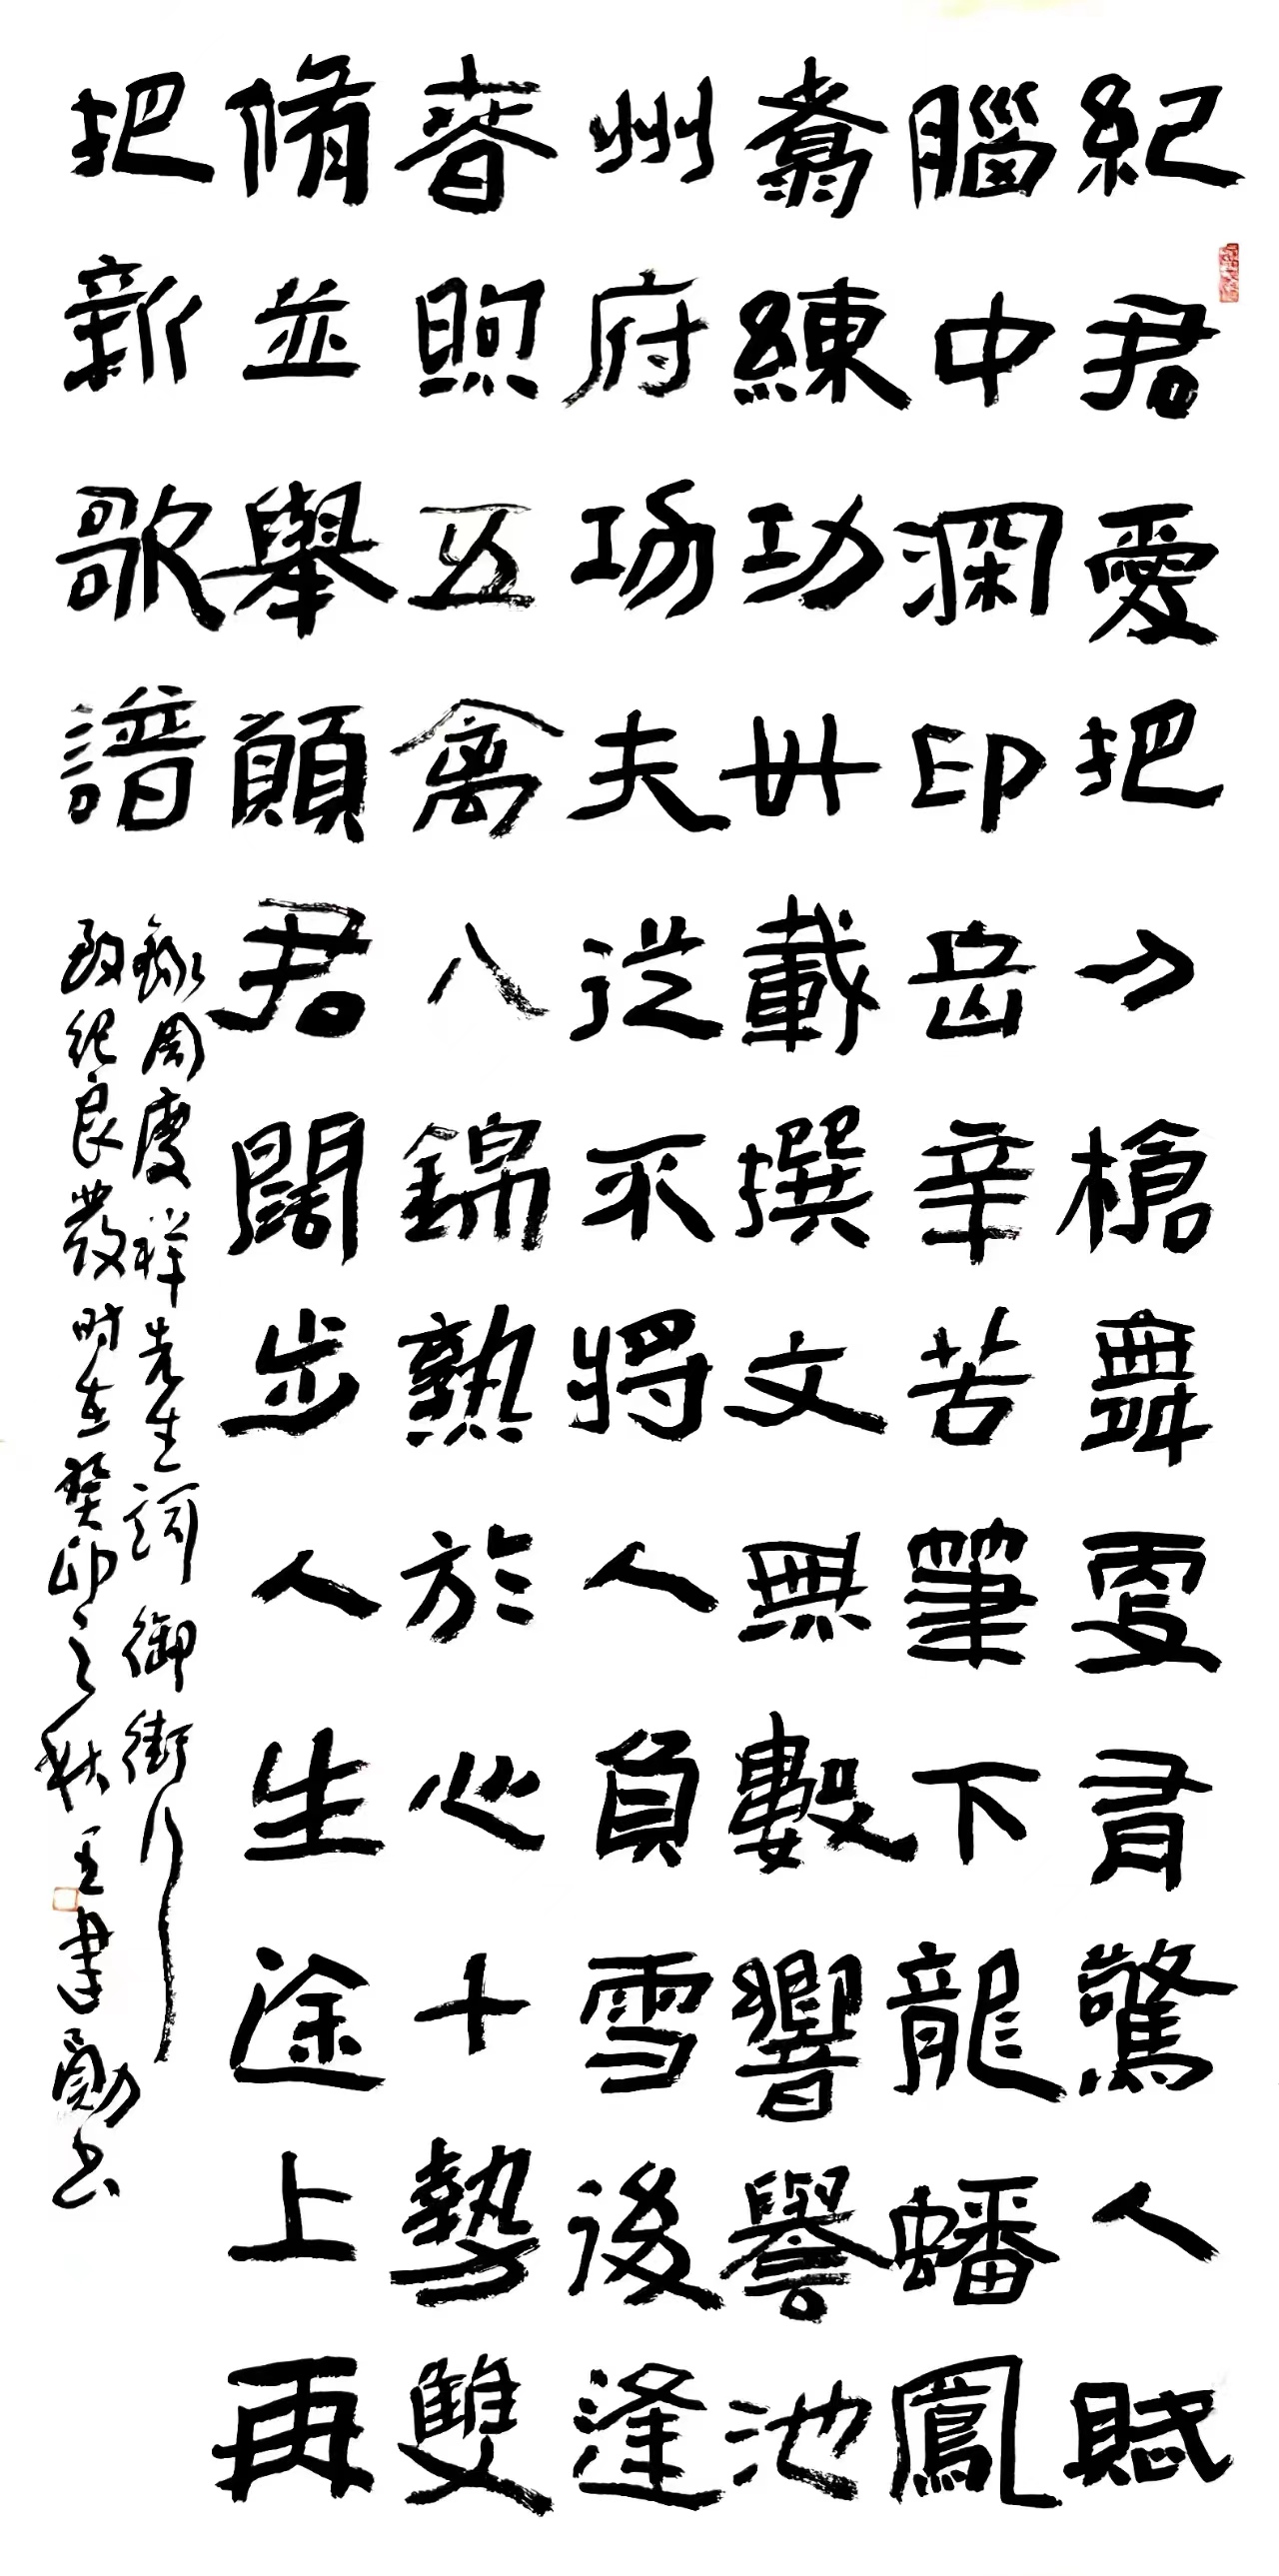 紀君愛把刀槍舞更有驚人賦
腦中深印岳辛苦筆下龍蟠鳳
翥練功卅載撰文無數響譽池
州府功夫從不將人負雪後逢
春煦五禽八錦熟於心十勢雙
脩並舉願君闊步人生途上再
把新歌譜
錄周慶祥先生詞御街行
致紀良發時在癸卯之秋王建勇书